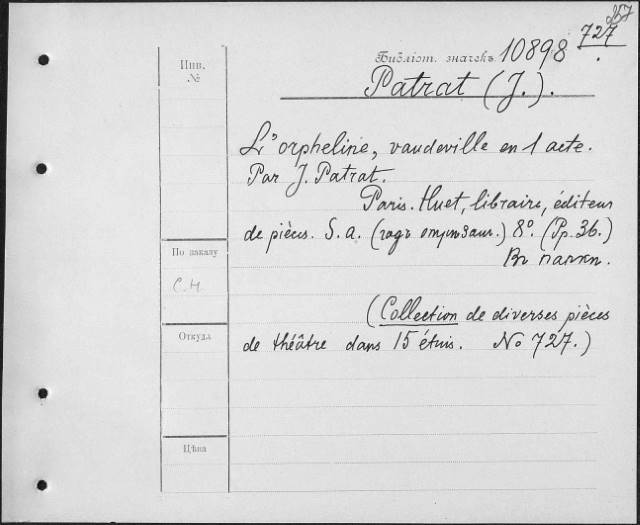 727
Инв.
№
Библіот. значекъ 10898
Patrat (J.).
L'orpheline, vaudeville en 1 acte.
Par J. Patrat.
Paris. Huet, libraire, éditeur
de pièces. S. a. (годъ отрѣзанъ.) 8º. (Pp. 36.)
Въ папкѣ.
По заказу
С.Н.
(Collection de diverses pièces
de théâtre dans 15 étuis. No 727.)
Откуда
Цѣна